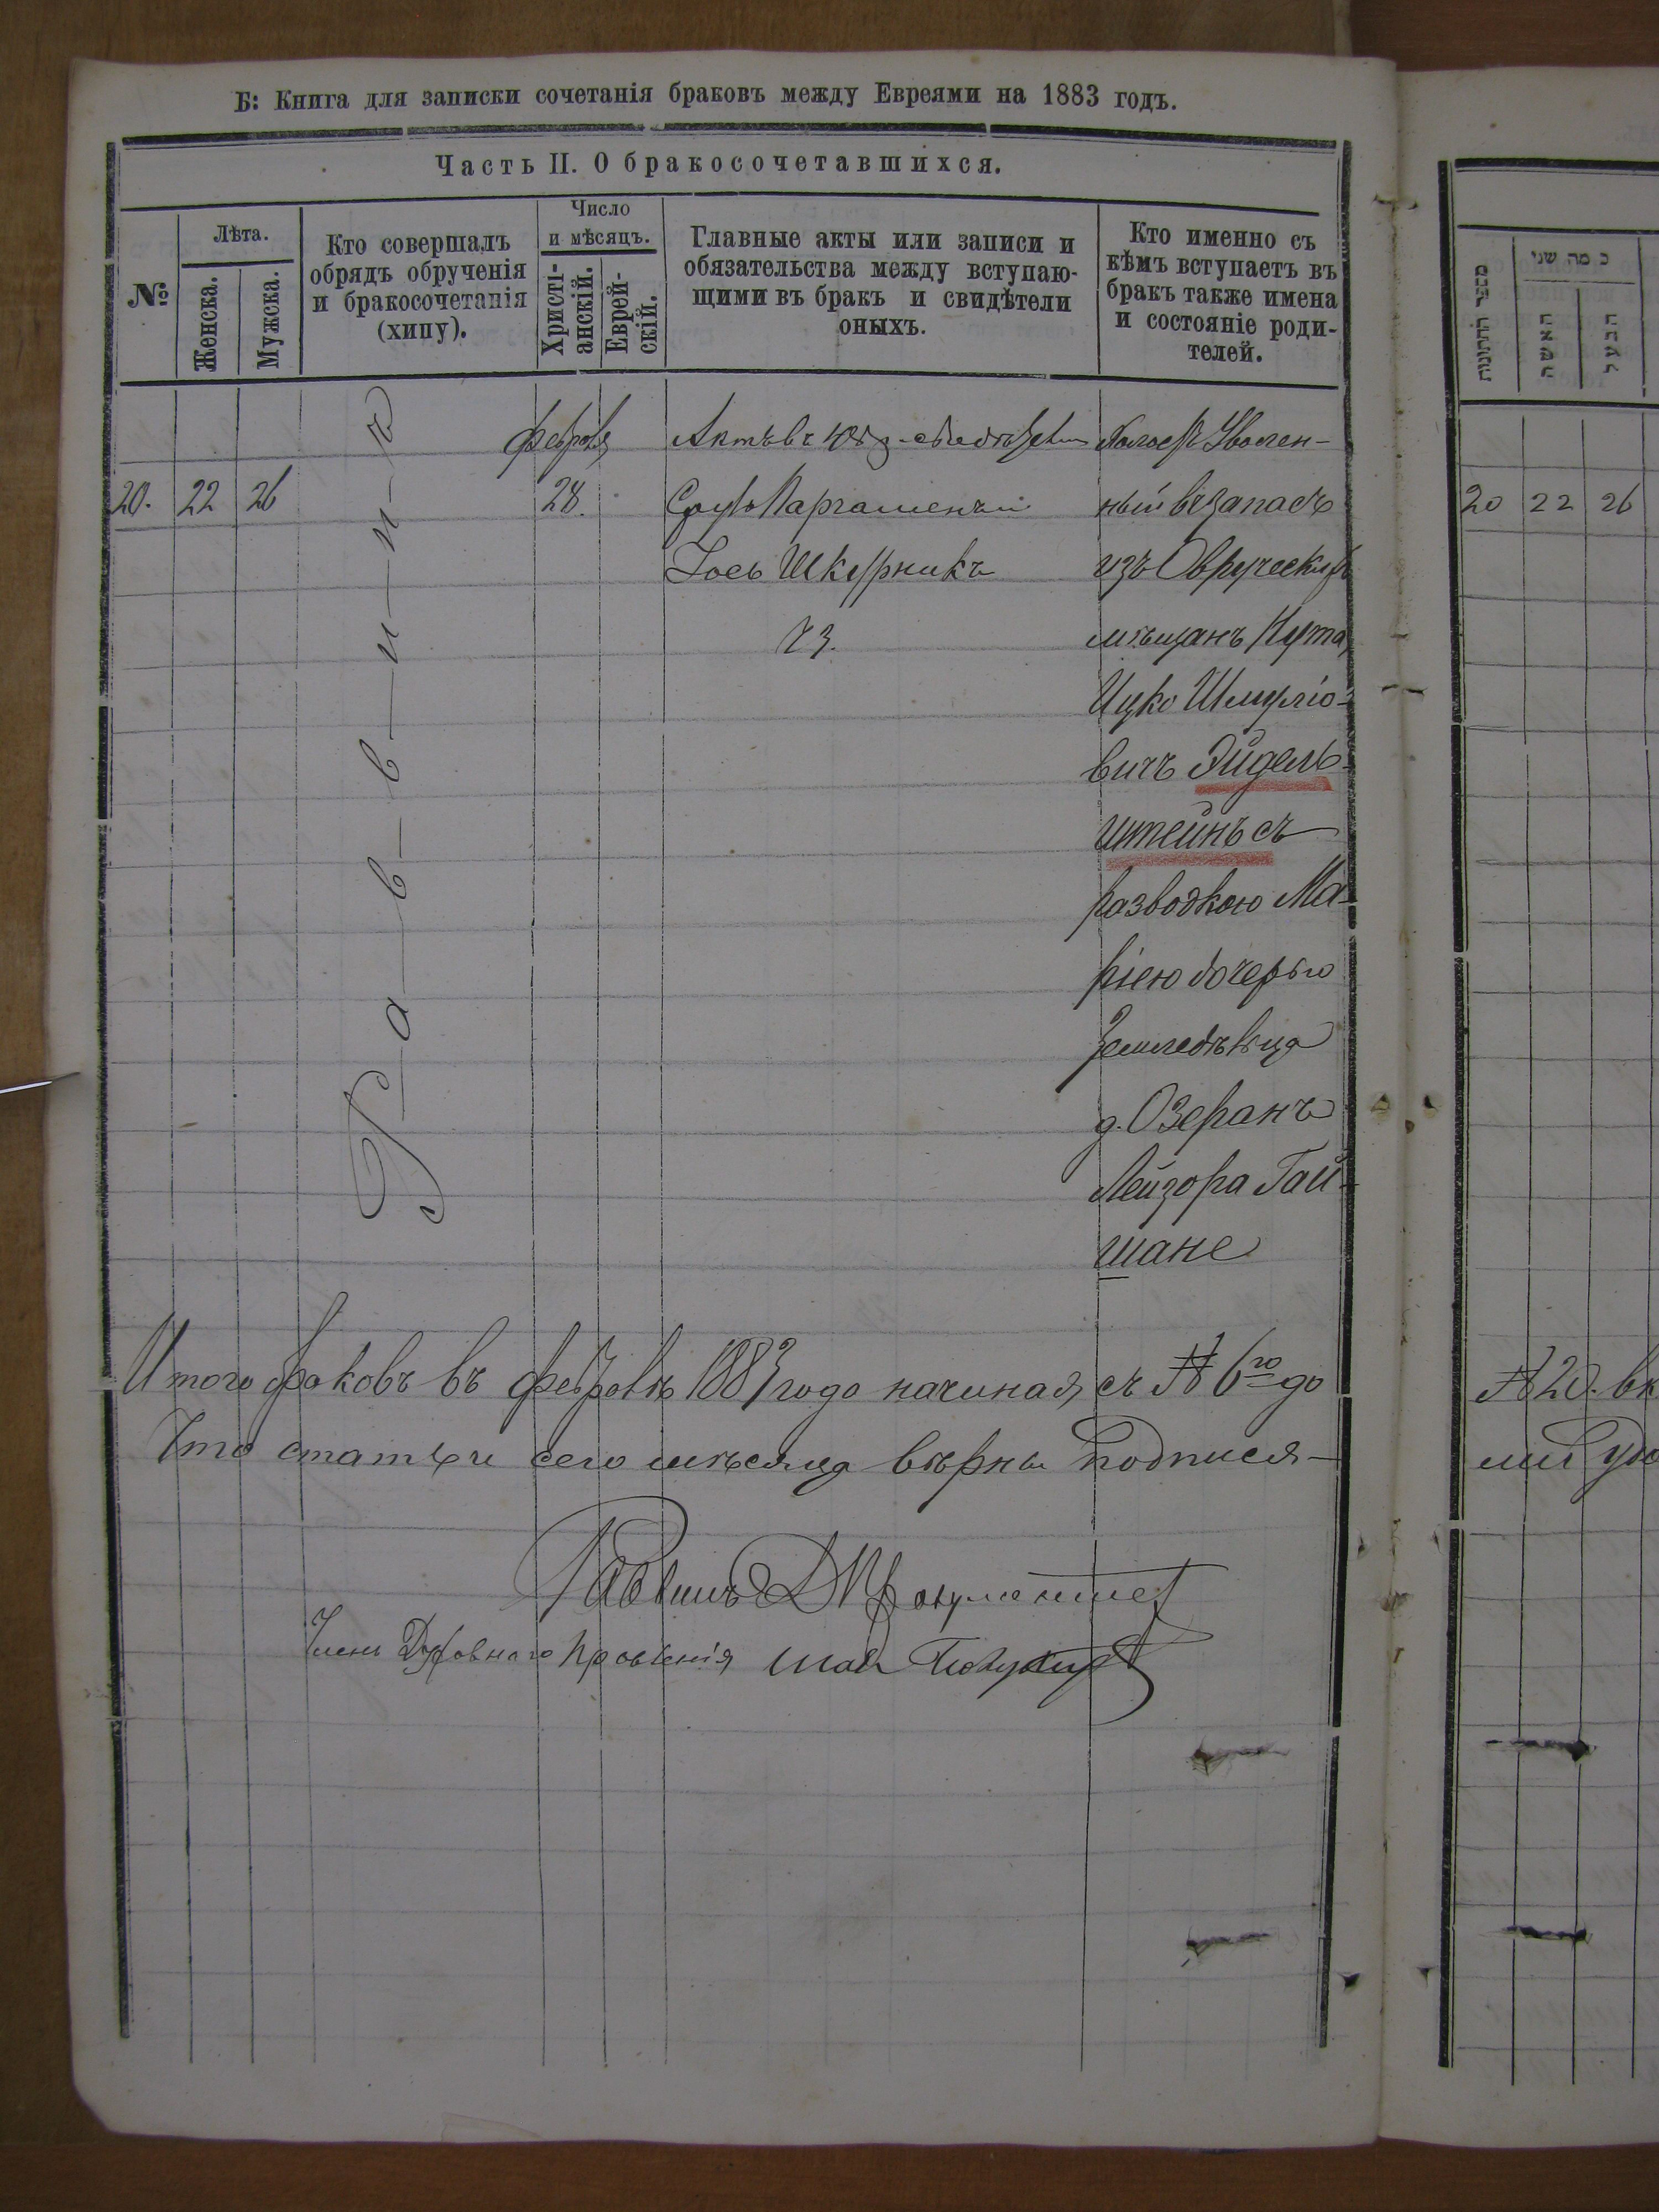 Б: Книга для записки сочетанія браковъ между Евреями на 1883 годъ.
Часть II. О бракосочетавшихся.
№
Лѣта.
Женска.
Мужска.
Кто совершалъ
обрядъ обрученія
и бракосочетанія
(хипу).
Число
и мѣсяцъ.
Христі-
анскій.
Еврей-
скій.
Главные акты или записи и
обязательства между вступаю-
щими въ бракъ и свидѣтели
оныхъ.
Кто именно съ
кѣмъ вступаетъ въ
бракъ также имена
и состояніе роди-
телей.
20.
22
26
Раввинъ
февраля
28.
Актъ въ свидѣтели
Сруль Паргаменъ и
Іось Шкурникъ
ч3.
Холостъ Уволен-
ный въ запасъ
изъ Овруческихъ
мѣщанъ Нута
Ицко Шмуліо-
вичъ Эйдель-
штейнъ съ
разводкою Ма-
ріею дочерью
Земледѣльца
д. Озеранъ
Лейзора Гай-
шане
Итого браковъ въ февралѣ 1883 года начиная съ № 6го до
Что статьи сего мѣсяца вѣрны подпися-
Раввинъ
Членъ Духовнаго Правленія
מספר החתונות
כמה שני
האשה
הבעל
20
22
26
№ 20. вк
ми удо